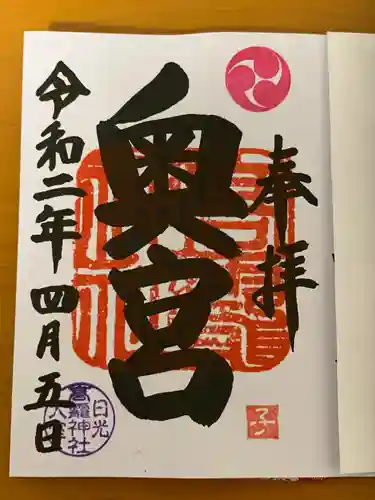 奉拝
奥宮
令和二年四月五日
日光
高龗神社
子